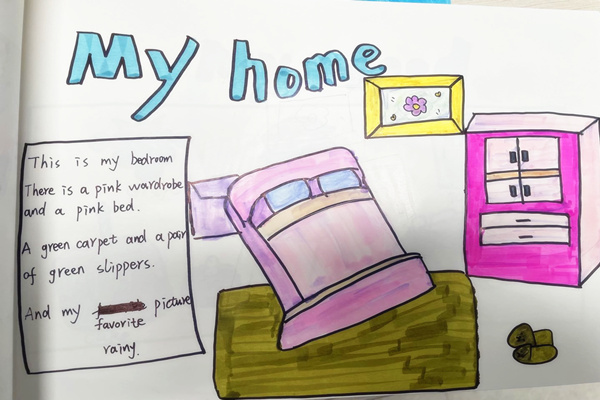 My home
This is my bedroom
There is a pink wardrobe
and a pink bed.
A green carpet and a pair
of green slippers.
And my picture
favorite
rainy.